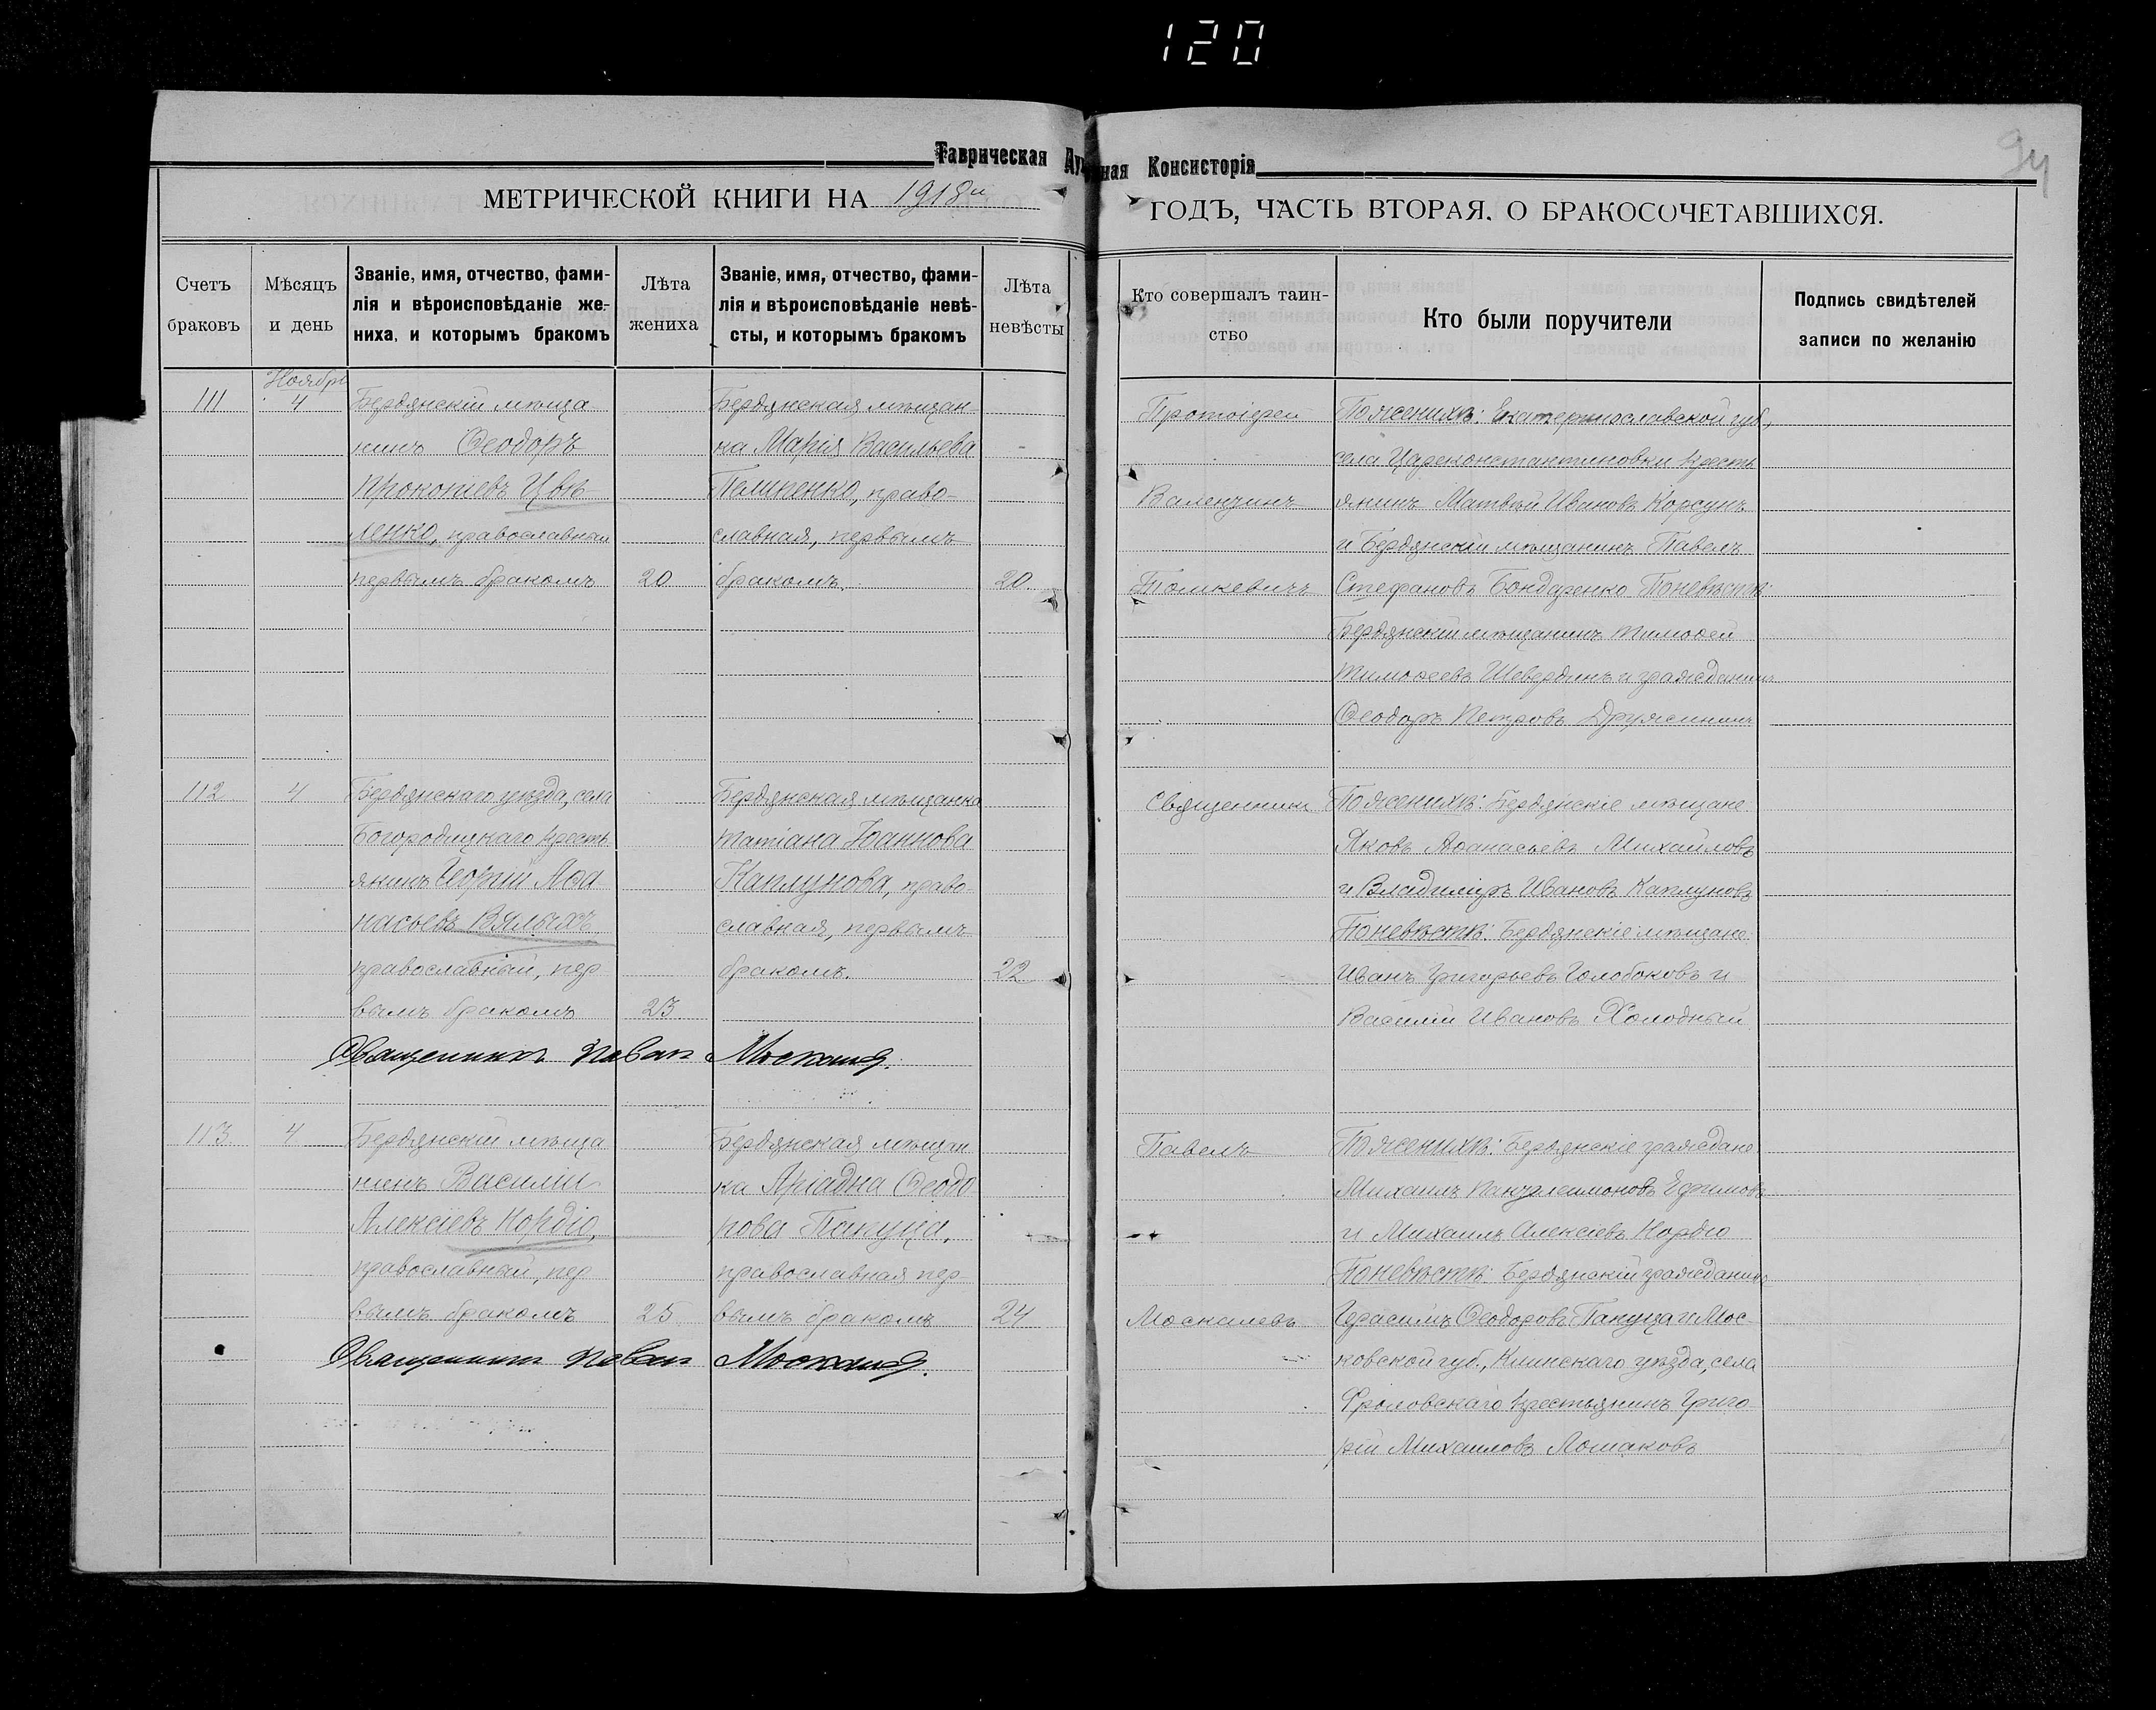 120
94
Таврическая Духовная Консисторія
МЕТРИЧЕСКОЙ КНИГИ НА 1918й ГОДЪ, ЧАСТЬ ВТОРАЯ. О БРАКОСОЧЕТАВШИХСЯ.
Счетъ
браковъ
Мѣсяцъ
и день
Званіе, имя, отчество, фами-
лія и вѣроисповѣданіе же-
ниха, и которымъ бракомъ
Лѣта
жениха
Званіе, имя, отчество, фами-
лія и вѣроисповѣданіе невѣ-
сты, и которымъ бракомъ
Лѣта
невѣсты
Кто совершалъ таин-
ство
Кто были поручители
Подпись свидѣтелей
записи по желанію
111
Ноябрь
4
Бердянскій мѣща
нинъ Ѳеодоръ
Прокопіевъ Цви
ленко, православный
первымъ бракомъ
20
Бердянская мѣщан-
ка Марія Васильева
православная, первымъ
бракомъ.
20
Протоіерей
Валенчинъ
Томкевичъ
По женихѣ: Екатеринославской губ.,
села Цареконстантиновки кресть
янинъ Матвѣй Ивановъ Корсунъ
и Бердянскій мѣщанинъ Павелъ
Стефановъ Бондаренко По невѣстѣ:
Бердянскій мѣщанинъ Тимоѳей
Тимоѳеевъ Шевердинъ и гражданинъ
Ѳеодоръ Петровъ Дружининъ
112
4
Бердянскаго уѣзда, села
Богородицкаго кресть
янинъ Георгій Аѳа
насьевъ Вялыхъ
православный, пер
вымъ бракомъ
23
Бердянская мѣщанка
Татіана Іоаннова
Каплунова, право-
славная, первымъ
бракомъ.
22
Священникъ
По женихѣ: Бердянскіе мѣщане:
Яковъ Аѳанасьевъ Михайловъ
и Владиміръ Ивановъ Каплуновъ
По невѣстѣ: Бердянскіе мѣщане:
Иванъ Григорьевъ Голобоковъ и
Василій Ивановъ Холодный
Священникъ Павелъ Москалевъ.
113
4
Бердянскій мѣща
нинъ Василій
Алексіевъ Нордіо,
православный, пер
вымъ бракомъ
25
Бердянская мѣщан
ка Аріадна Ѳеодо
рова Пануца,
православная пер
вымъ бракомъ
24
Павелъ
Москалевъ
По женихѣ: Бердянскіе граждане
Михаилъ Пантелеимоновъ Ефимовъ
и Михаилъ Алексіевъ Нордіо
По невѣстѣ: Бердянскій гражданинъ
Герасимъ Ѳеодоровъ Пануца и Мос-
ковской губ., Клинскаго уѣзда, села
Фроловскаго крестьянинъ Григо
рій Михаиловъ Лошаковъ
Священникъ Павелъ Москалевъ.